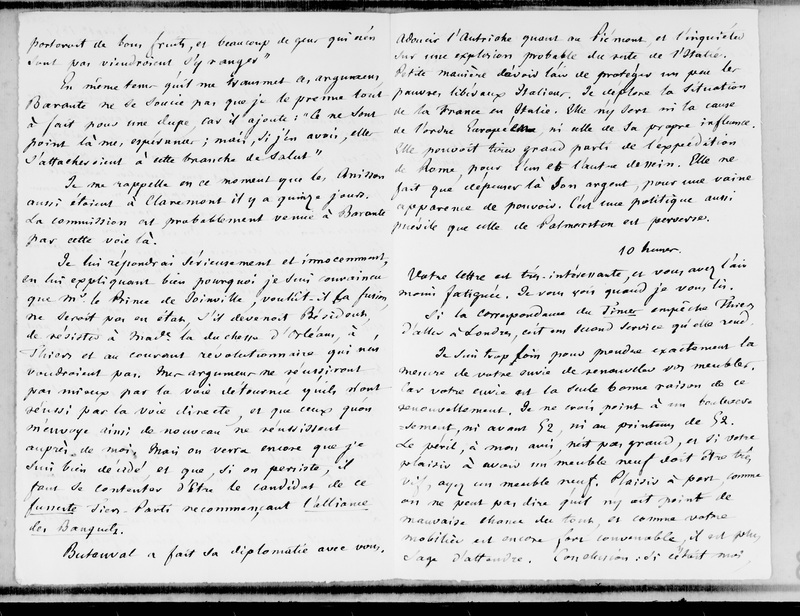 porteront de bons fruits, et beaucoup de gens qui n'en
sont pas viendroient s'y ranger"
En même tems qu'il me transmet ces argumens,
Barante ne se soucie pas que je le prenne tout
à fait pour une dupe, car il ajoute : "Ce ne sont
point là mes espérances ; mais, si j'en avois, elles
s'attacheroient à cette branche de salut"
Je me rappelle en ce moment que les Anisson
aussi étoient à Claremont il y a quinze jours.
La commission est probablement venue à Barante
par cette voie là.
Je lui répondrai sérieusement et innocemment,
en lui expliquant bien pourquoi je suis convaincu
que Mr. le Prince de Joinville, voulût-il la fusion,
ne seroit pas en état, s'il devenoit Président,
de résister à Made. la duchesse d'Orléans, à
Thiers et au courant révolutionnaire qui n'en
voudroient pas. Mes argumens ne réussiront
pas mieux par la voie détournée qu'ils n'ont
réussi par la voie directe, et que ceux qu'on
m'envoye ainsi de nouveau ne réussissent
auprès de moi. Mais on verra encore que je
suis bien décidé et que, si on persiste, il
faut se contenter d'être le candidat de ce
funeste Tiers-Parti recommençant l'alliance
des Banquets.
Butenval a fait sa diplomatie avec vous,
adoucir l'Autriche quant au Piémont, et l'inquiéter
sur une explosion probable du reste de l'Italie.
Petite manière d'avoir l'air de protéger un peu les
pauvres libéraux Italiens. Je déplore la situation
de la France en Italie. Elle n'y sert ni la cause
de l'ordre Européen, ni celle de sa propre influence.
Elle pouvoit tirer grand parti de l'expédition
de Rome, pour l'un et l'autre dessein. Elle ne
fait que dépenser là son argent, pour une vaine
apparence de pouvoir. C'est une politique aussi
puérile que celle de Palmerston est perverse.
10 heures.
Votre lettre est très-intéressante, et vous avez l'air
moins fatiguée. Je vous vois quand je vous lis.
Si la correspondance du Times empêche Thiers
d'aller à Londres, c'est un second service qu'elle rend.
Je suis trop loin pour prendre exactement la
mesure de votre envie de renouveller vos meubles.
Car votre envie est la seule bonne raison de ce
renouvellement. Je ne crois point à un bouleverse-
sement, ni avant 52, ni au printems de 52.
Le péril, à mon avis, n'est pas grand, et si votre
plaisir à avoir un meuble neuf doit être très
vif, ayez un meuble neuf. Plaisir à part, comme
on ne peut pas dire qu'il n'y ait point de
mauvaise chance du tout, et comme votre
mobilier est encore fort convenable, il est plus
sage d'attendre. Conclusion : si c'étoit moi,